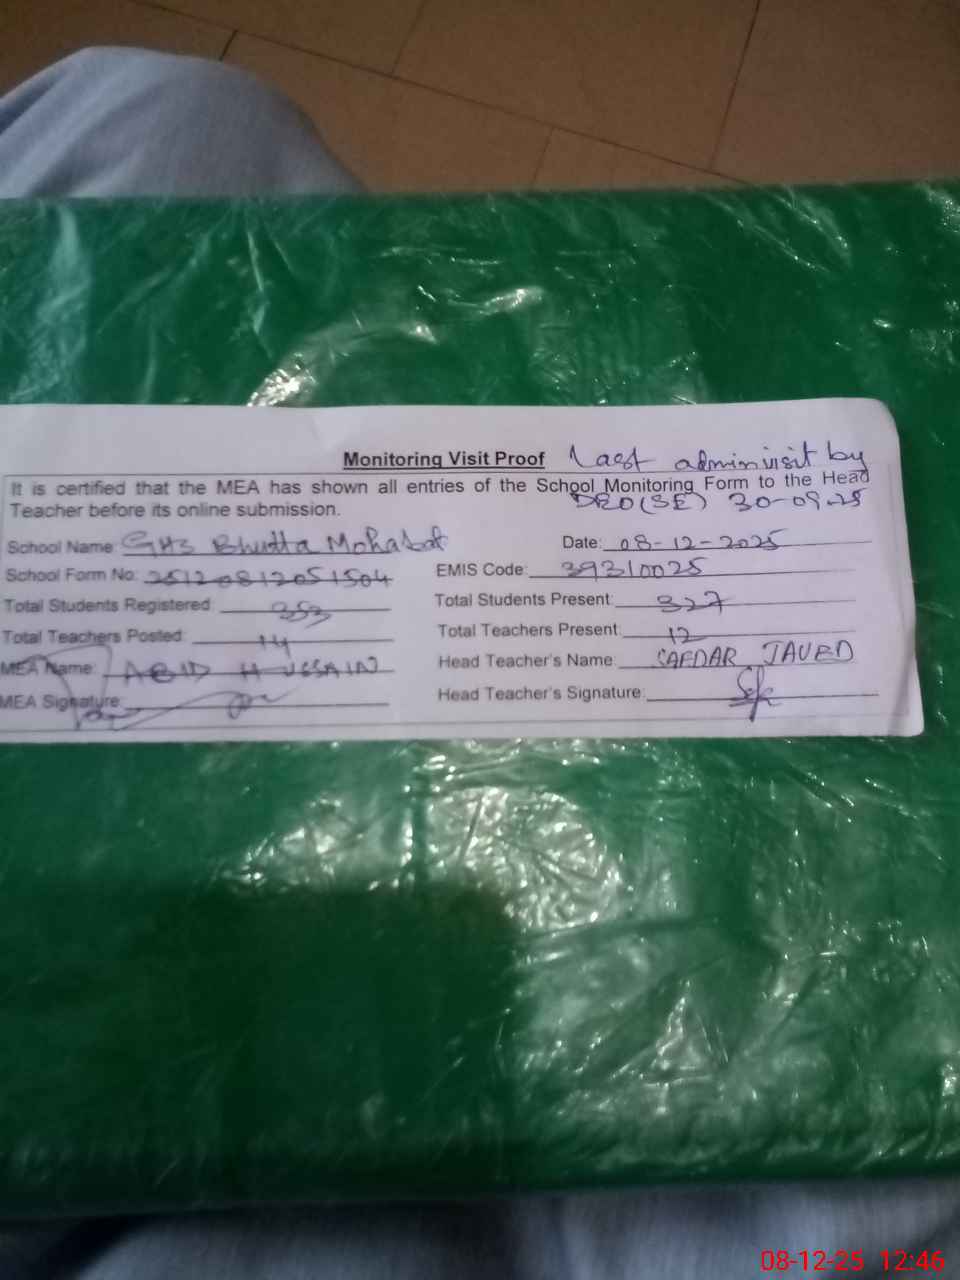 Monitoring Visit Proof Last admin visit by
It is certified that the MEA has shown all entries of the School Monitoring Form to the Head
DEO(SE) 30-09-25
Teacher before its online submission.
School Name: GHS Bhutta Mohabat Date: 08-12-2025
School Form No: 25120812051504 EMIS Code: 39310025
Total Students Registered: 353 Total Students Present: 327
Total Teachers Posted: 14 Total Teachers Present: 12
MEA Name: ABID HUSSAIN Head Teacher's Name: SAFDAR JAVED
MEA Signature: Head Teacher's Signature:
08-12-25 12:46